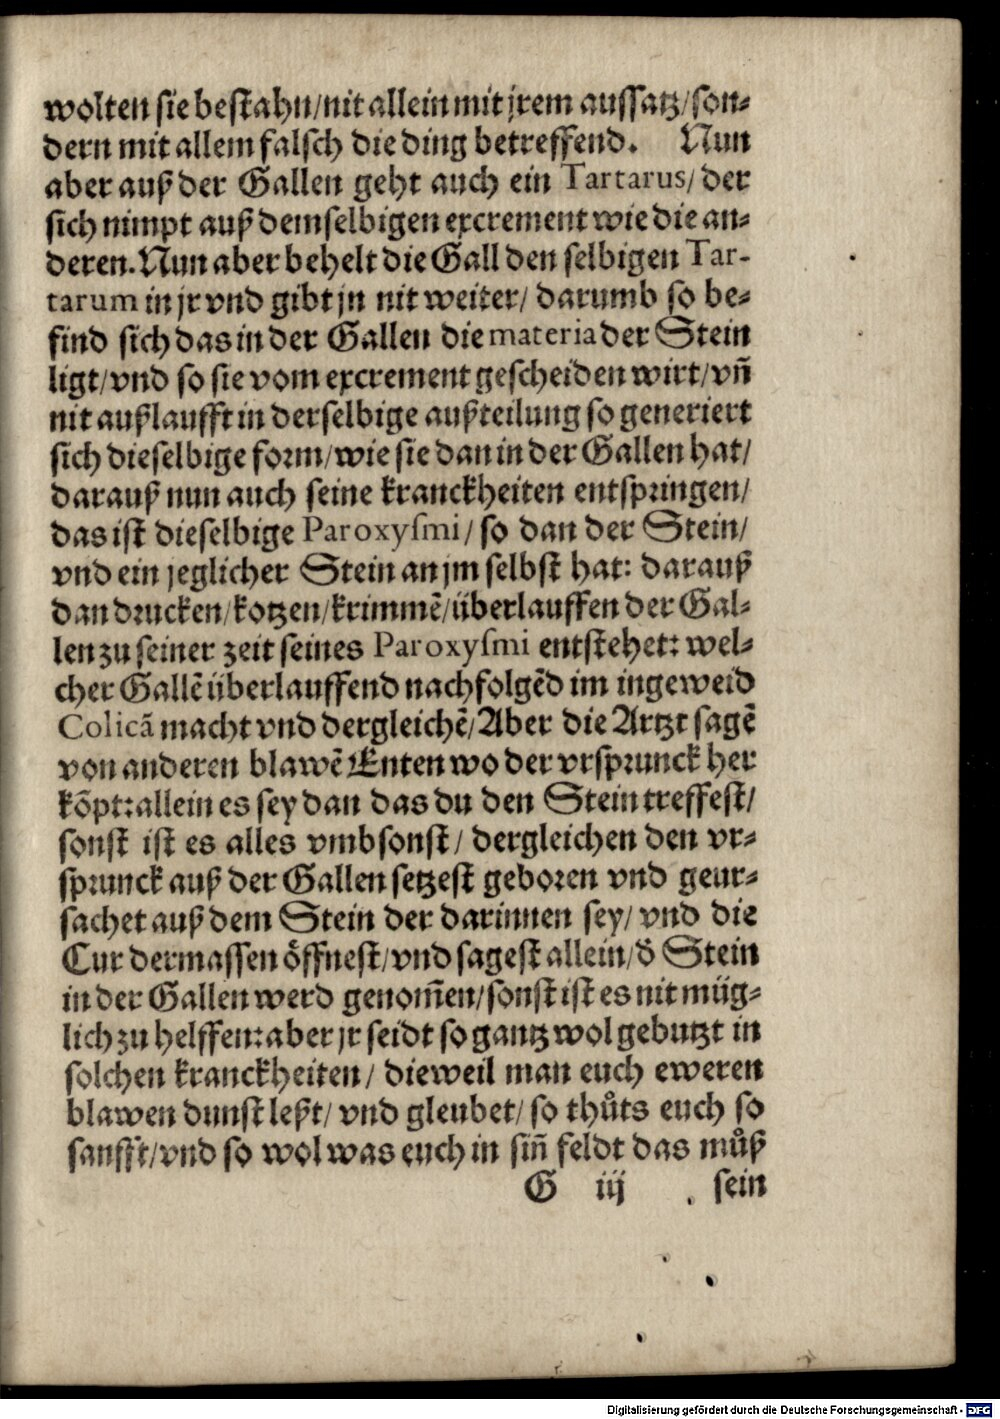 wolten sie bestahn/nit allein mit jrem aussatz/son-
dern mit allem falsch die ding betreffend. Nun
aber auß der Gallen geht auch ein Tartarus/ der
sich nimpt auß demselbigen excrement wie die an-
deren. Nun aber behelt die Gall den selbigen Tar-
tarum in jr vnd gibt jn nit weiter/ darumb so be-
find sich das in der Gallen die materia der Stein
ligt/vnd so sie vom excrement gescheiden wirt/vn̄
nit außlaufft in derselbige außteilung so generiert
sich dieselbige form/wie sie dan in der Gallen hat/
darauß nun auch seine kranckheiten entspringen/
das ist dieselbige Paroxysmi/ so dan der Stein/
vnd ein jeglicher Stein an jm selbst hat: darauß
dan drucken/kotzen/krimmē/überlauffen der Gal-
len zu seiner zeit seines Paroxysmi entstehet: wel-
cher Gallē überlauffend nachfolgēd im ingeweid
Colicā macht vnd dergleichē/Aber die Artzt sagē
von anderen blawē Enten wo der vrsprunck her
kōpt: allein es sey dan das du den Stein treffest/
sonst ist es alles vmbsonst/ dergleichen den vr-
sprunck auß der Gallen setzest geboren vnd geur-
sachet auß dem Stein der darinnen sey/ vnd die
Cur dermassen öffnest/vnd sagest allein/ð Stein
in der Gallen werd genom̄en/sonst ist es nit müg-
lich zu helffen: aber jr seidt so gantz wol gebutzt in
solchen kranckheiten/ dieweil man euch eweren
blawen dunst leßt/ vnd gleubet/ so thůts euch so
sanfft/vnd so wol was euch in sin̄ feldt das můß
G iij sein
Digitalisierung gefördert durch die Deutsche Forschungsgemeinschaft - DFG